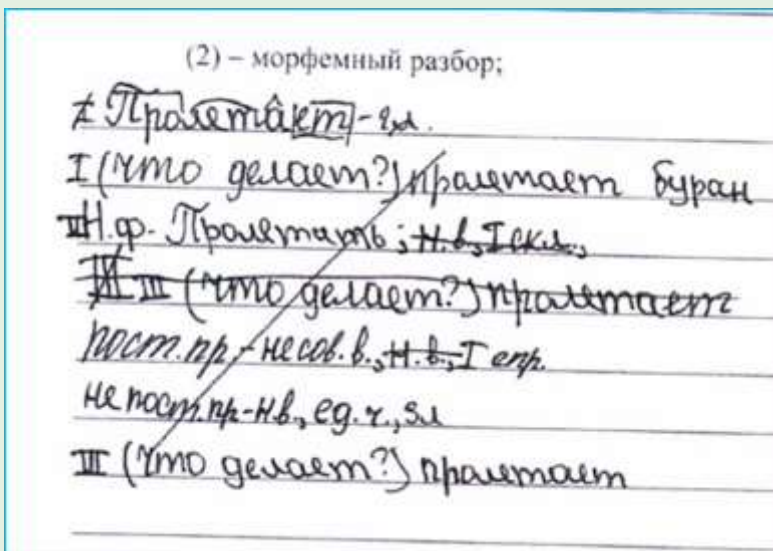 (2) – морфемный разбор;
Пролетает - гл.
I (что делает?) пролетает буран
II Н.ф. - Пролетать; н.в., I скл.,
III (что делает?) пролетает
пост.пр.-несов.в., н.в., I спр.
непост.пр-н.в., ед.ч., 3л
III (что делает?) пролетает